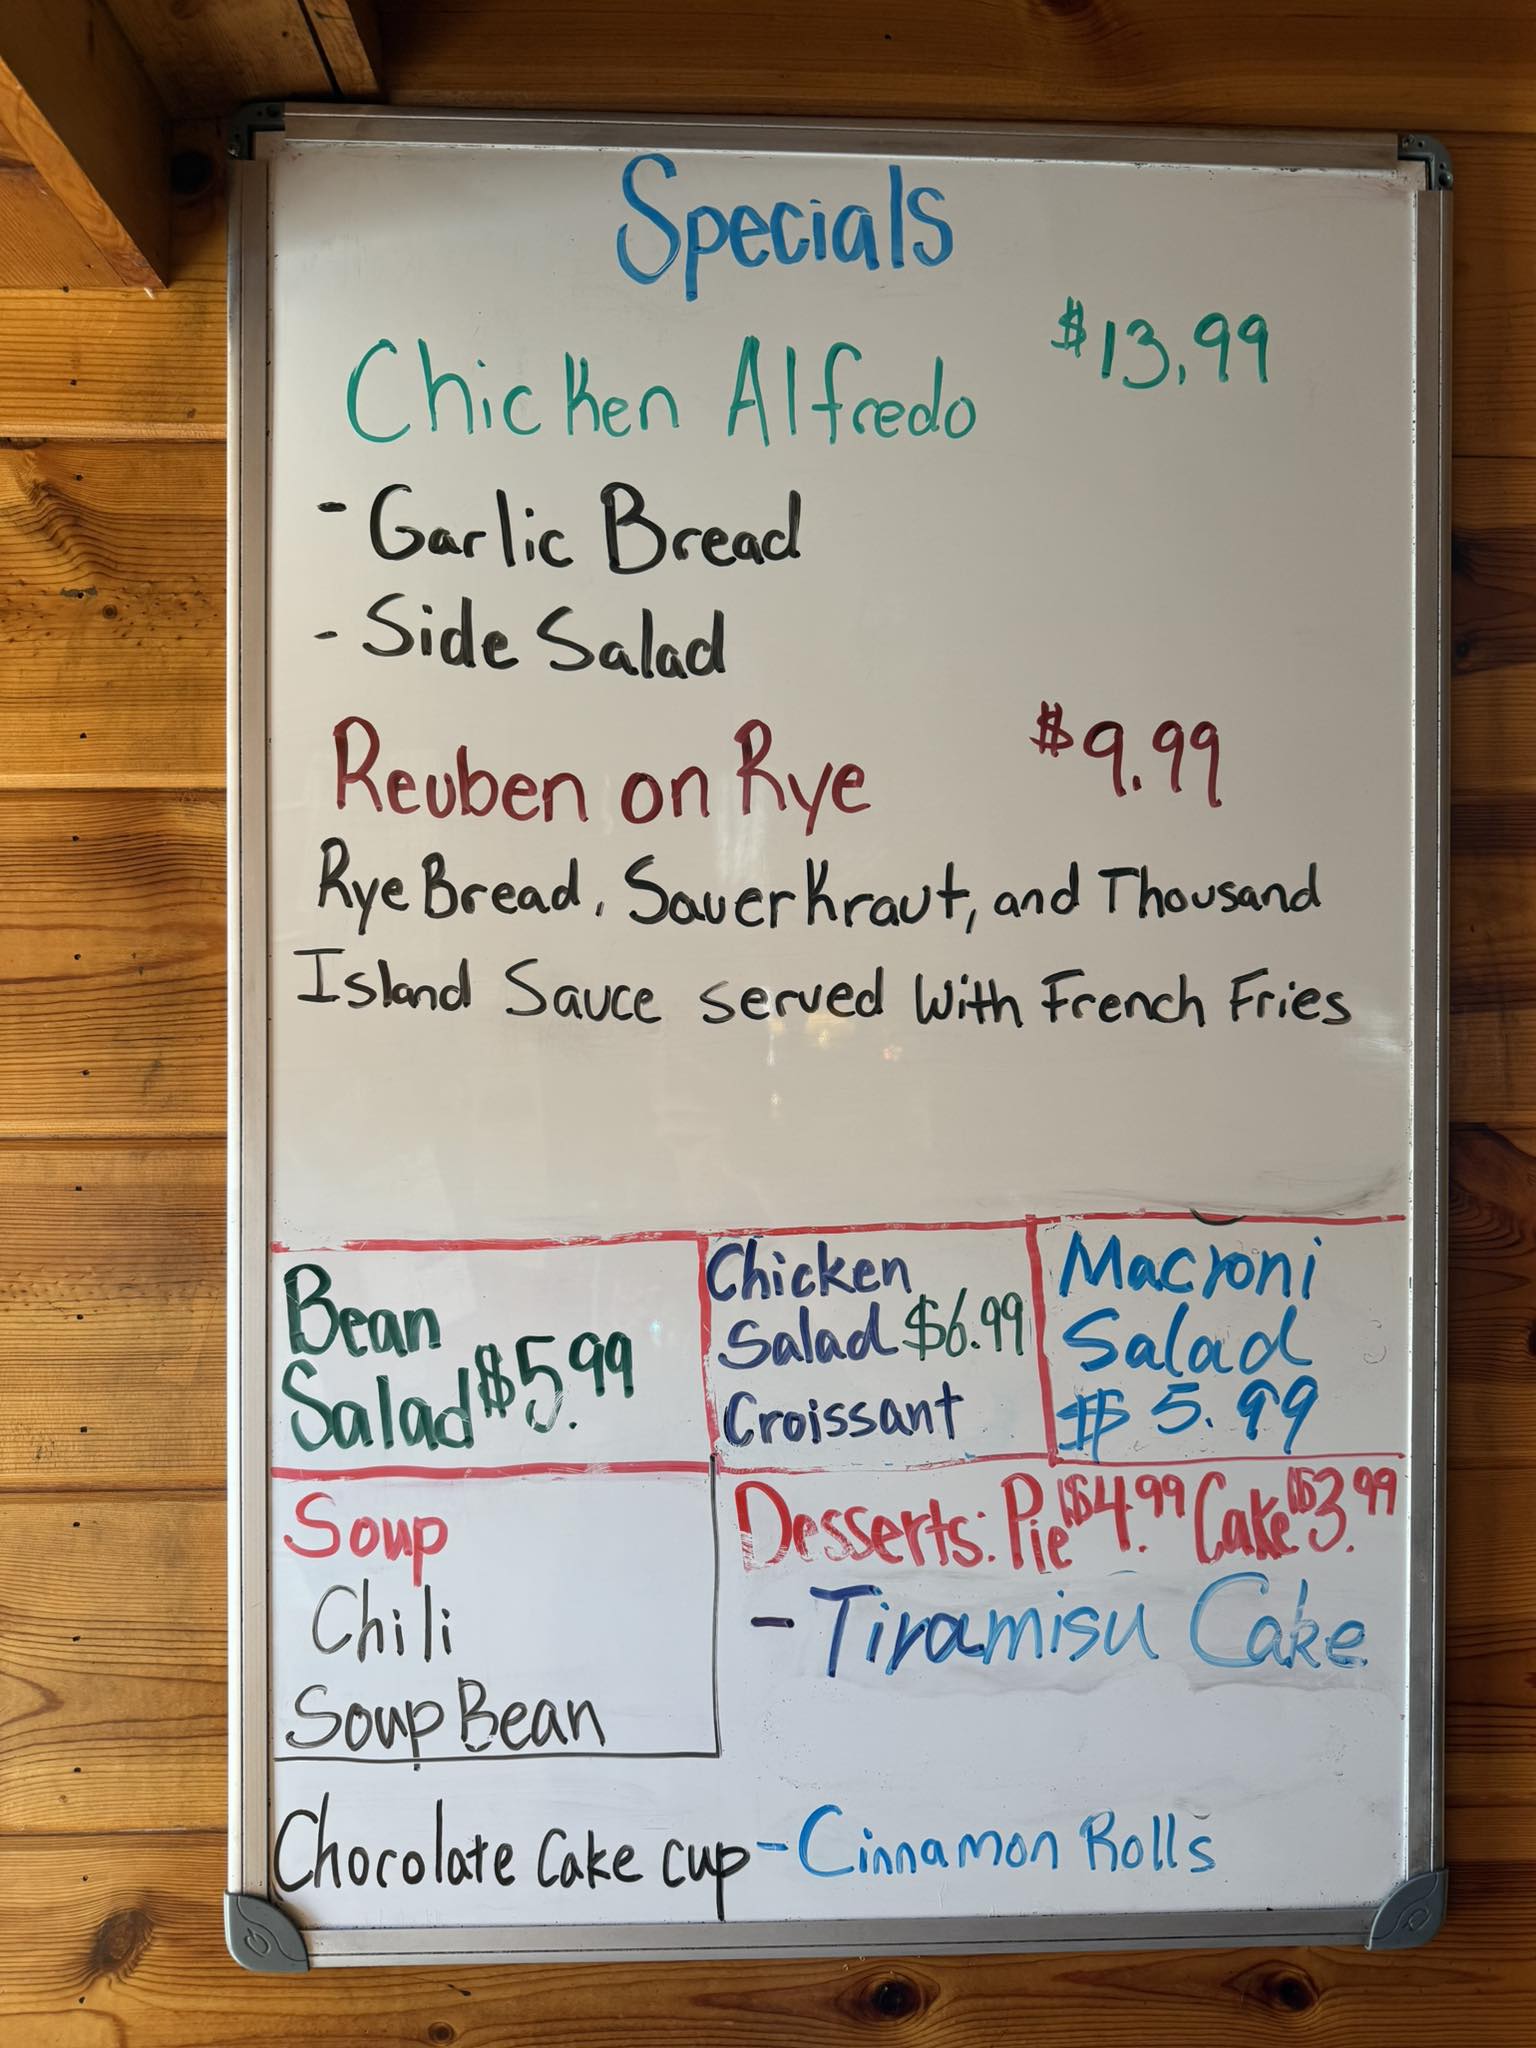 Specials
Chicken Alfredo $13.99
- Garlic Bread
- Side Salad
Reuben on Rye $9.99
Rye Bread, Sauerkraut, and Thousand
Island Sauce served with French Fries
Bean
Salad $5.99
Chicken
Salad $6.99
Croissant
Macroni
Salad
$5.99
Soup
Chili
Soup Bean
Desserts: Pie $4.99 Cake $3.99
- Tiramisu Cake
Chocolate Cake cup - Cinnamon Rolls